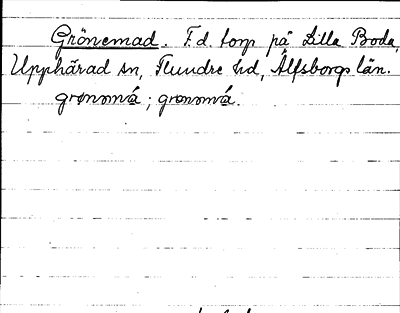 Grönemad. F.d. torp på Lilla Boda,
Upphärad sn, Flundre hd, Älfsborgs län.
grønəmá; grønəmá.